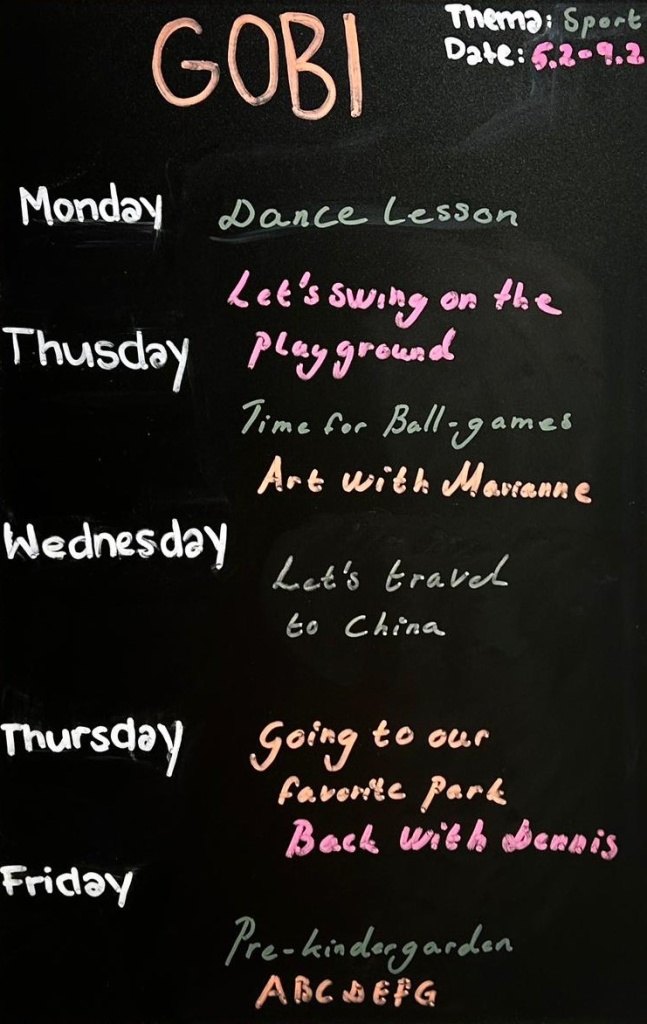 GOBI
Thema: Sport
Date: 5.2-9.2
Monday
Dance Lesson
Let's swing on the
Thusday
playground
Time for Ball-games
Art with Marianne
Wednesday
Let's travel
to China
Thursday
Going to our
favorite park
Back with Dennis
Friday
Pre-kindergarden
ABCDEFG